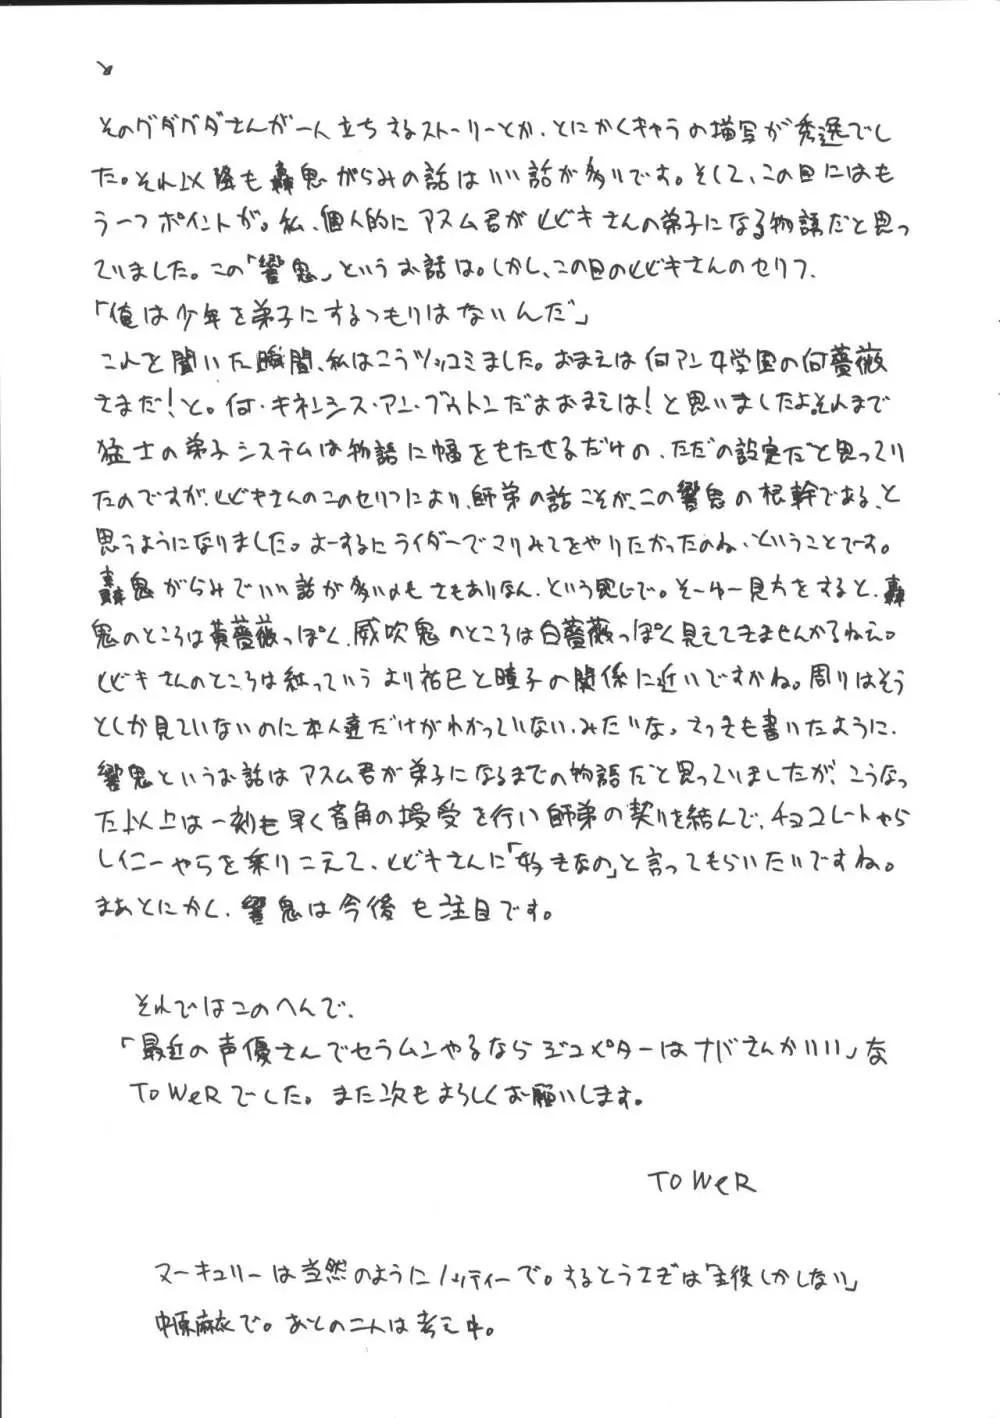 そのグダグダさんが一人立ちするストーリーとか、とにかくキャラの描写が秀逸でし
た。それ以降も轟鬼がらみの話はいい話が多いです。そして、この回にはも
う一つポイントが。私、個人的にアスム君がヒビキさんの弟子になる物語だと思っ
ていました。この「響鬼」というお話は。しかし、この回のヒビキさんのセリフ、
「俺は少年を弟子にするつもりはないんだ」
これを聞いた瞬間、私はこうツッコミました。おまえは何アン女学園の何薔薇
さまだ!と。何・キネンシス・アン・ブゥトンだよおまえは!と思いましたよ。それまで
猛士の弟子システムは物語に幅をもたせるだけの、ただの設定だと思ってい
たのですが、ヒビキさんのこのセリフにより、師弟の話こそが、この響鬼の根幹である、と
思うようになりました。よーするにライダーでマリみてをやりたかったのね、ということです。
轟鬼がらみでいい話が多いのもさもありなん、という感じで。そーゆー見方をすると、轟
鬼のところは黄薔薇っぽく、威吹鬼のところは白薔薇っぽく見えてきませんかねえ。
ヒビキさんのところは紅っていうより祐巳と瞳子の関係に近いですかね。周りはそう
としか見ていないのに本人達だけがわかっていない、みたいな。さっきも書いたように、
響鬼というお話はアスム君が弟子になるまでの物語だと思っていましたが、こうなっ
た以上は一刻も早く音角の授受を行い師弟の契りを結んで、チョコレートやら
レイニーやらを乗りこえて、ヒビキさんに「好きなの」と言ってもらいたいですね。
まあとにかく、響鬼は今後も注目です。
それではこのへんで、
「最近の声優さんでセラムンやるならジュピターはナバさんがいい」な
TOWeRでした。また次もよろしくお願いします。
TOWeR
マーキュリーは当然のようにノッティーで。するとうさぎは「主役しかしない」
中原麻衣で。あとの二人は考え中。